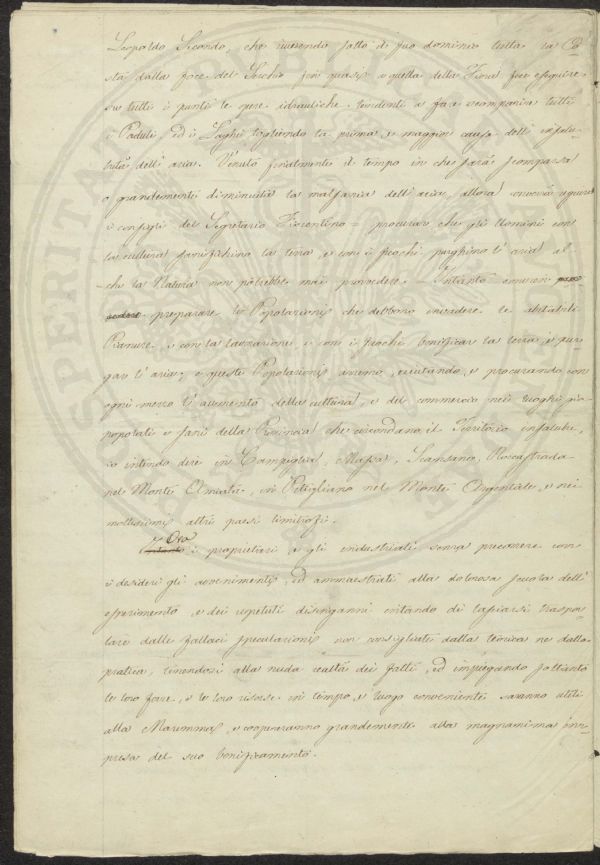 Leopoldo Secondo, che avendo fatto di suo dominio tutta la Co
sta dalla foce del Serchio fin quasi a quella della Fiora fece eseguire
su tutti i punti le opere idrauliche tendenti a fare scomparire tutti
i Paduli, ed i Laghi togliendo la prima, e maggior causa dell' insalu
brità dell' aria. Venuto finalmente il tempo in che sarà scomparsa
o grandemente diminuita la malsania dell' aria, allora converrà seguire
i consigli del Segretario Fiorentino = procurar che gli Uomini con
la cultura sanifichino la terra, e con i fuochi purghino l' aria al
che la Natura non potrebbe mai provvedere. = Intanto convien
preparare le Popolazioni che debbono invadere le abitabili
Pianure, e con la lavorazione, e con i fuochi bonificar la terra, e pur
gar l' aria; e queste Popolazioni avremo, aiutando, e procurando con
ogni mezzo l' aumento della cultura, e del commercio nei luoghi più
popolati e sani della Provincia che circondano il Territorio insalubre,
io intendo dire in Campiglia, Massa, Scansano, Roccastrada
nel Monte Amiata, in Pitigliano nel Monte Argentale, e nei
moltissimi altri paesi limitrofi.
Ora i proprietari e gli industriali senza precorrere con
i desideri gli avvenimenti, ed ammaestrati alla dolorosa scuola dell'
esperimento e dei ripetuti disinganni evitando di lasciarsi traspor
tare dalle fallaci speculazioni non consigliate dalla teorica ne dalla
pratica, tenendosi alla nuda realtà dei fatti, ed impiegando soltanto
le loro forze, e le loro risorse in tempo, e luogo conveniente saranno utili
alla Maremma, e coopereranno grandemente alla magnanima im
presa del suo bonificamento.